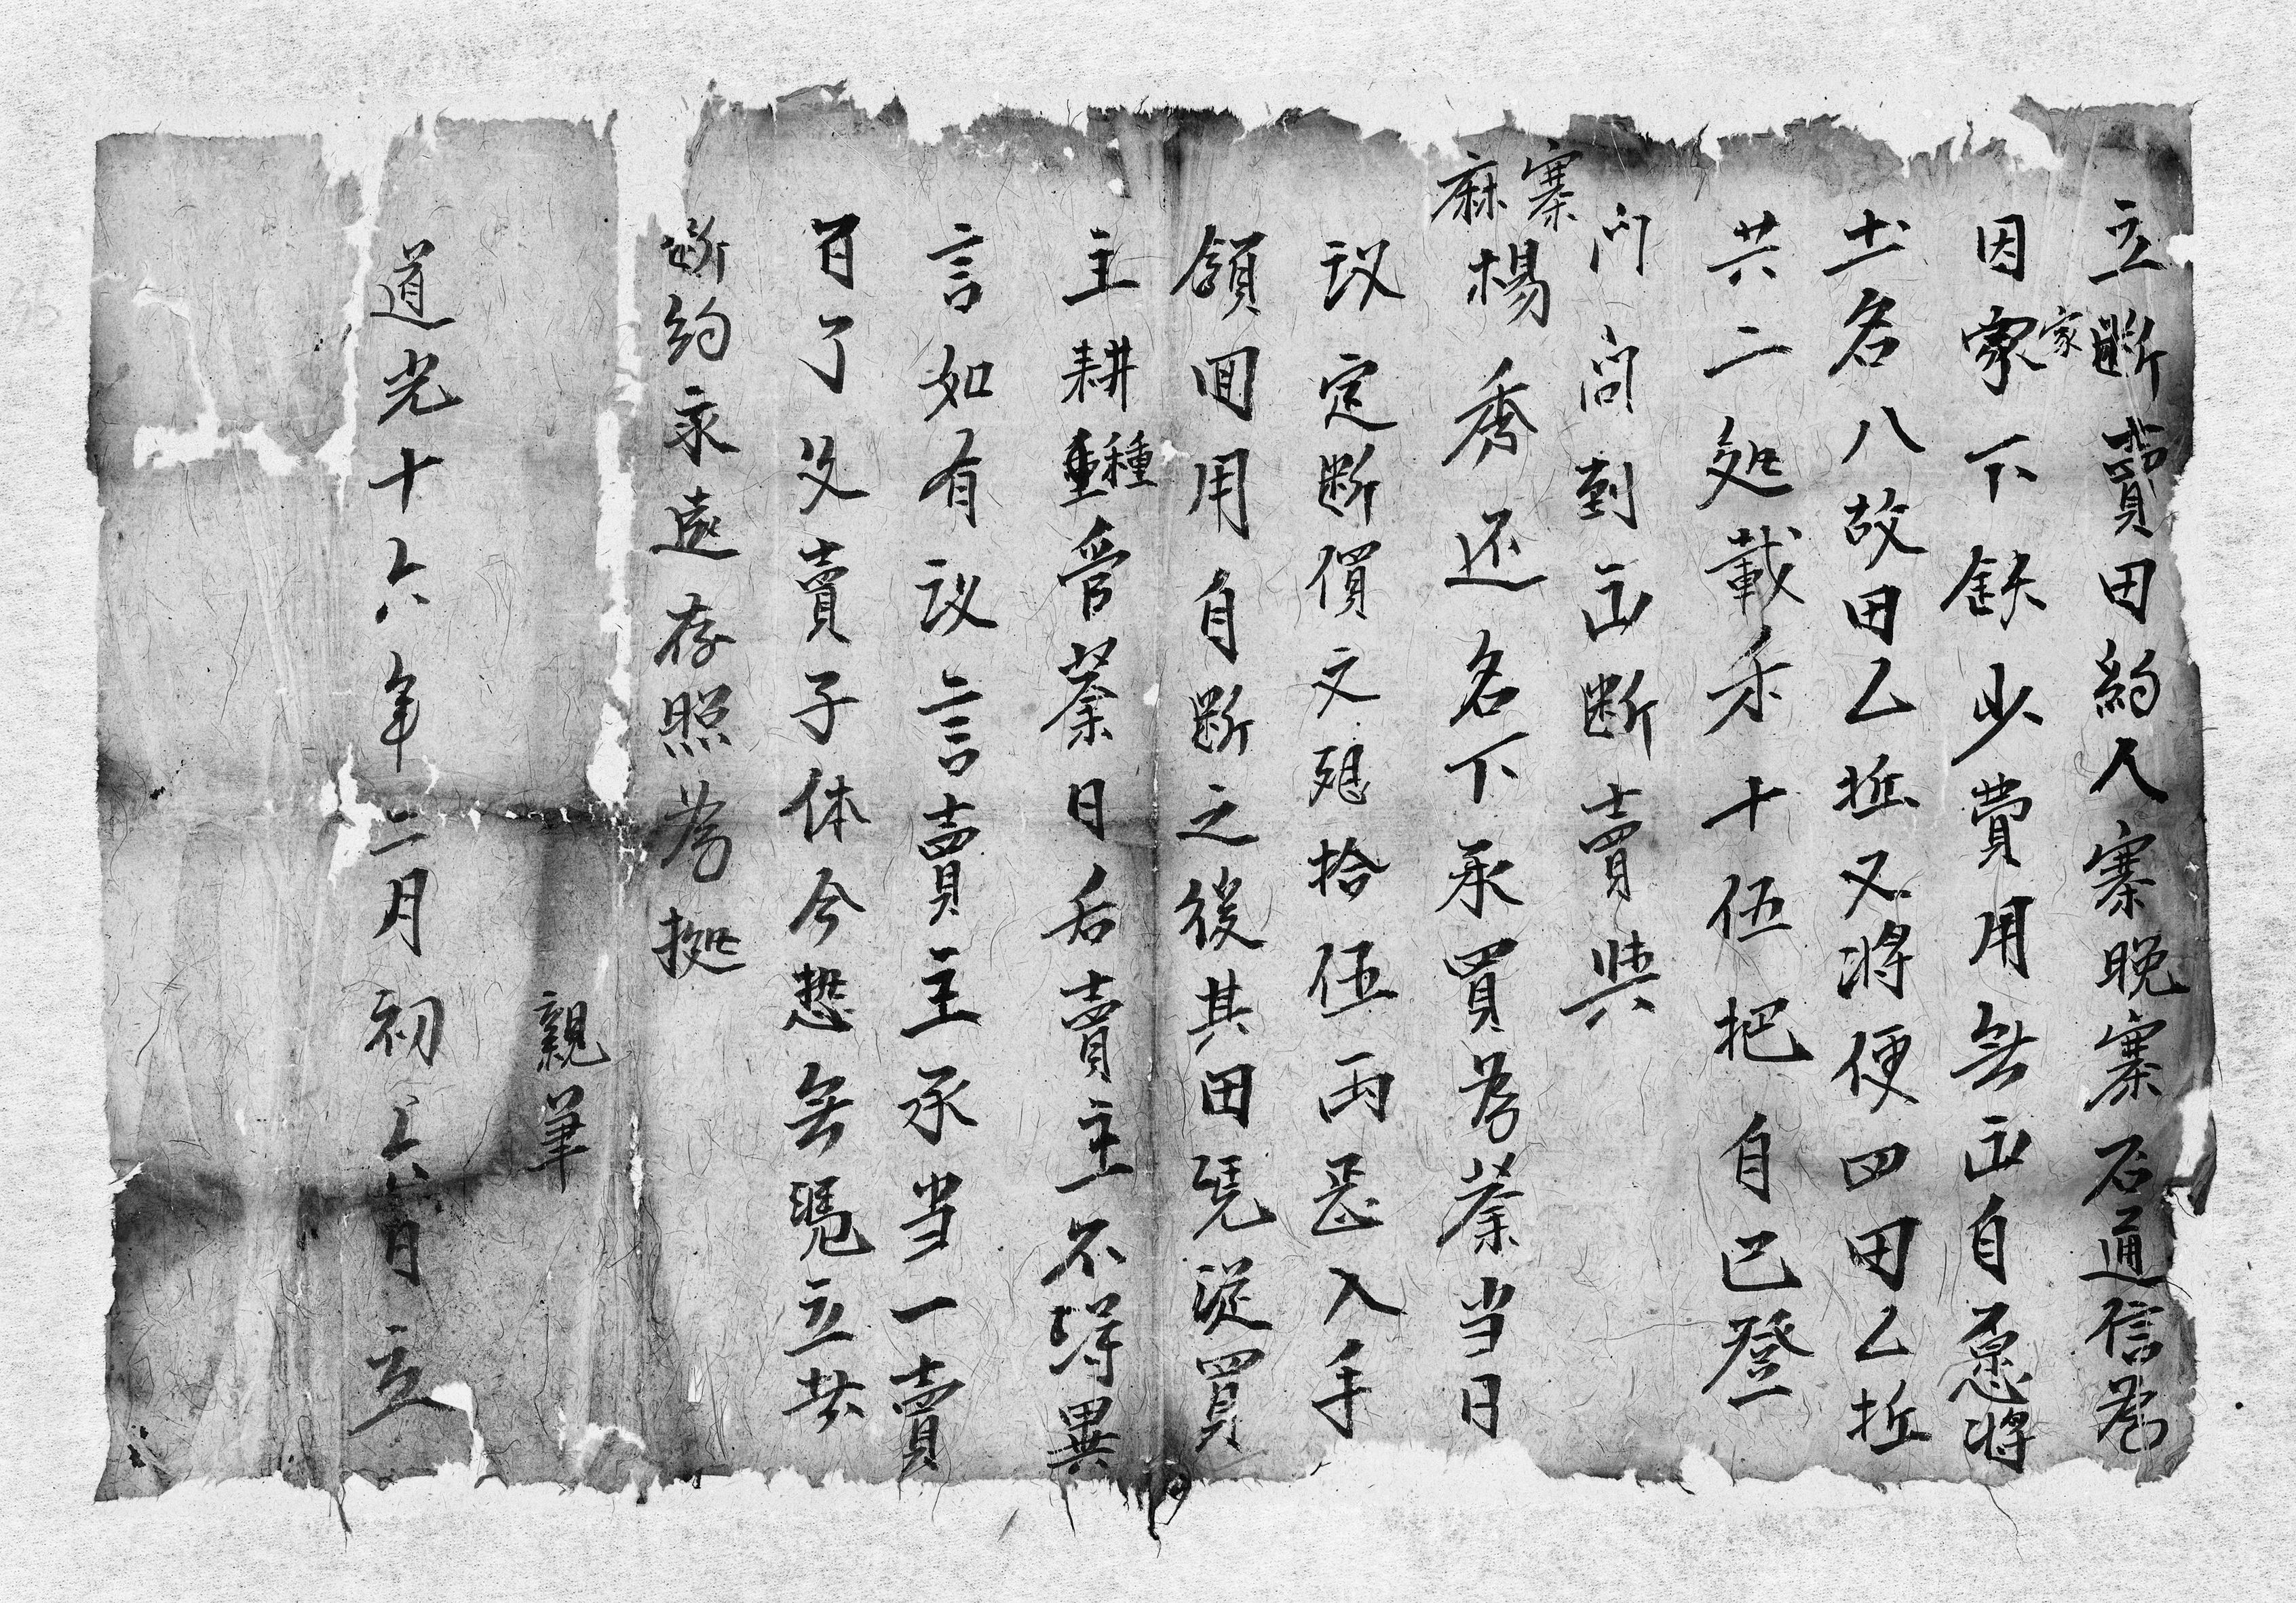 立断賣田約人寨晚寨石通信為
因家家下缺少費用無出自愿將
土名八故田乙坵又將便四田乙坵
共二処載禾十伍把自己登
门問到出断賣與
寨麻楊秀还名下承買為業当日
议定断價文艮拾伍両召入手
領囬用自断之後其田凴従買
主耕種管業日后賣主不得異
言如有议言賣主承当一賣
百了父賣子休今恐無凴立
断約永遠存照為拠
親筆
道光十六年二月初六日立